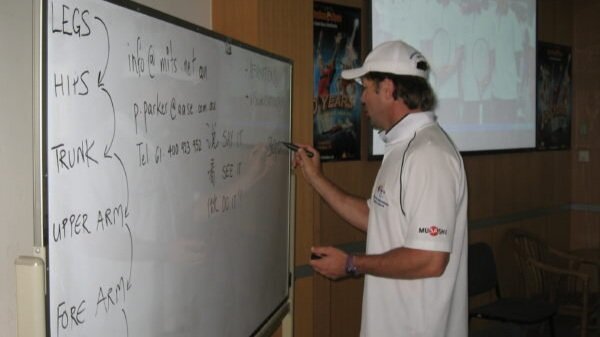 LEGS
HIPS
TRUNK
UPPER ARM
FORE ARM
info@mits.net.au
p.parker@aase.com.au
Tel 61 400 923 452
说 SAY IT
看 SEE IT
做 DO IT
YEARS